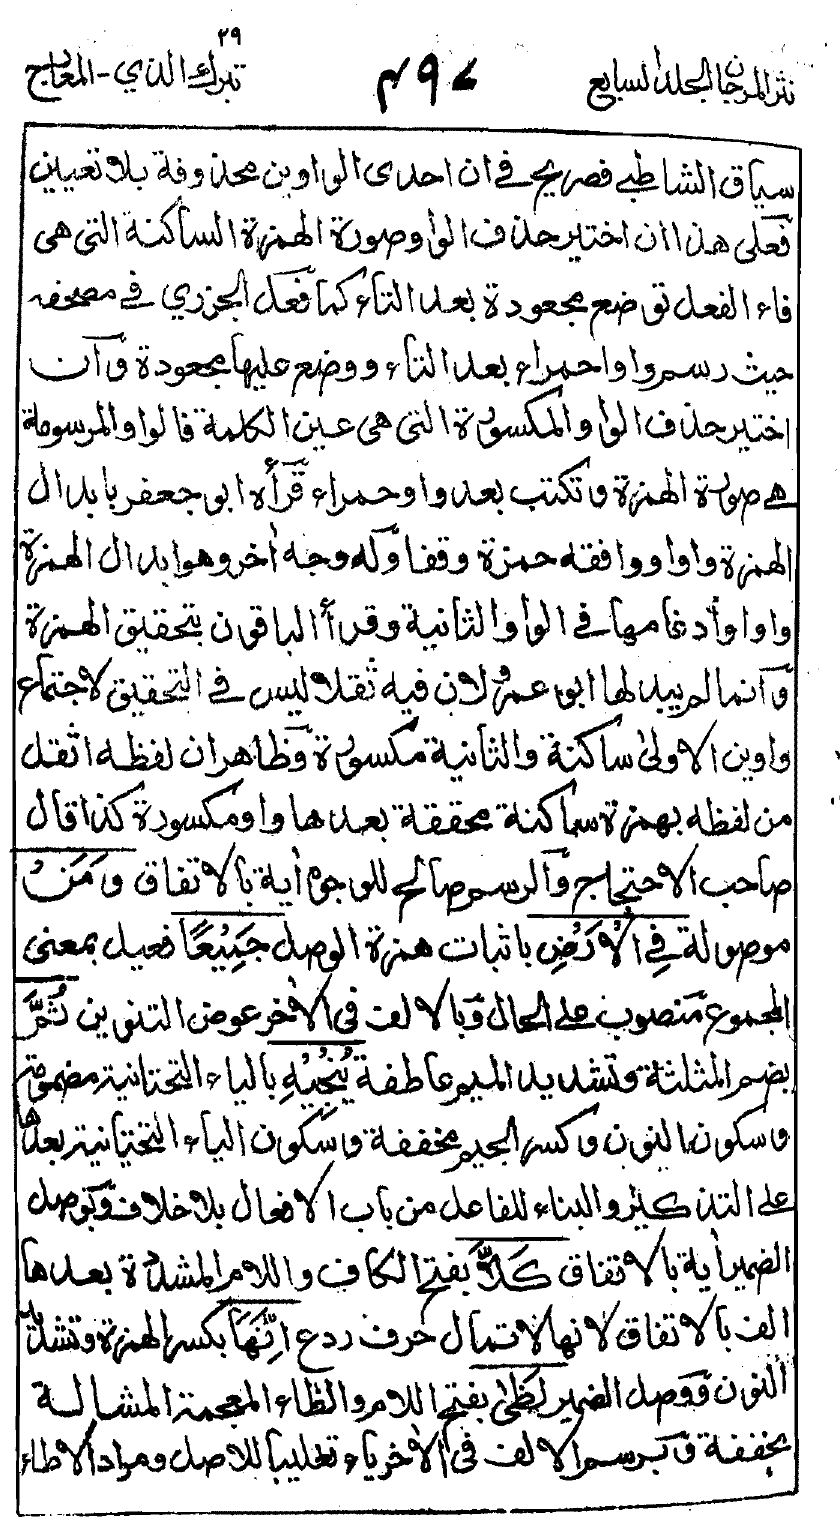 نثر المرجان الجلد السابع ٤٩٧ تبرك الذي - المعارج ٢٩
سياق الشاطبي فصريح في ان احدى الواوين محذوفة بلا تعيين
فعلى هذا ان اختير حذف الواو صورة الهمزة الساكنة التي هي
فاء الفعل توضع مجعودة بعد التاء كما فعل الجزري في مصحفه
حيث رسم واوا حمراء بعد التاء ووضع عليها مجعودة وآن
اختير حذف الواو المكسورة التي هي عين الكلمة فالواو المرسومة
هي صورة الهمزة وتكتب بعد واو حمراء قرأه ابو جعفر بابدال
الهمزة واوا ووافقه حمزة وقفا وله وجه أخر وهو ابدال الهمزة
واوا وأدغامها في الواو الثانية وقرأ الباقون بتحقيق الهمزة
وآنما لم يبدلها ابو عمرو لان فيه ثقلا ليس في التحقيق لاجتماع
واوين الاولى ساكنة والثانية مكسورة وظاهر ان لفظه اثقل
من لفظه بهمزة ساكنة محققة بعدها واو مكسورة كذا قال
صاحب الاحتجاج وآلرسم صالح للوجوه أية بالاتفاق وَمَنْ
موصولة فِي الْأَرْضِ باثبات همزة الوصل جَمِيْعًا فعيل بمعنى
المجموع منصوب على الحال وبالالف في الأخر عوض التنوين ثُمَّ
بضم المثلثة وتشديد الميم عاطفة يُنْجِيْهِ بالياء التحتانية مضمومة
وسكون النون وكسر الجيم مخففة وسكون الياء التحتيانية بعدها
على التذكير والبناء للفاعل من باب الافعال بلا خلاف وبوصل
الضمير أية بالاتفاق كَلَّا بفتح الكاف واللام المشددة بعدها
الف بالاتفاق لانها لا تمال حرف ردع اِنَّهَا بكسر الهمزة وتشديد
النون ووصل الضمير لَظٰى بفتح اللام والظاء المعجمة المشالة
مخففة وبرسم الالف في الأخر ياء تغليبا للاصل ومراد الاطاء